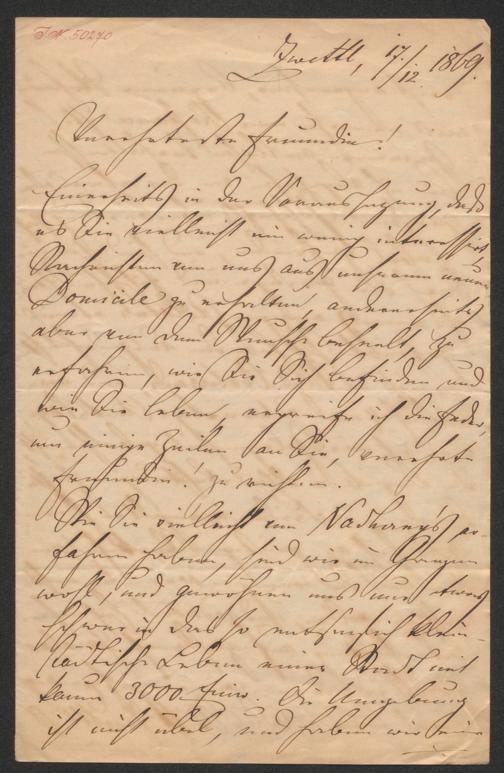 I.N. 50270
Zwettl, 17./12. 1869.
Verehrteste Freundin!
Einerseits in der Voraussetzung, daß
es Sie vielleicht ein wenig interessirt,
Nachrichten von uns aus unserem neuen
Domicile zu erhalten, andererseits
aber von dem Wunsche beseelt, zu
erfahren, wie Sie Sich befinden und
wie Sie leben, ergreife ich die Feder,
um einige Zeilen an Sie, verehrte
Freundin! zu richten.
Wie Sie vielleicht von Nadherny's er-
fahren haben, sind wir im Ganzen
wohl, und gewöhnen uns nur etwas
schwer in das so entsetzlich klein-
städtische Leben einer Stadt mit
kaum 3000 Einw. Die Umgebung
ist nicht übel, und haben wir eine